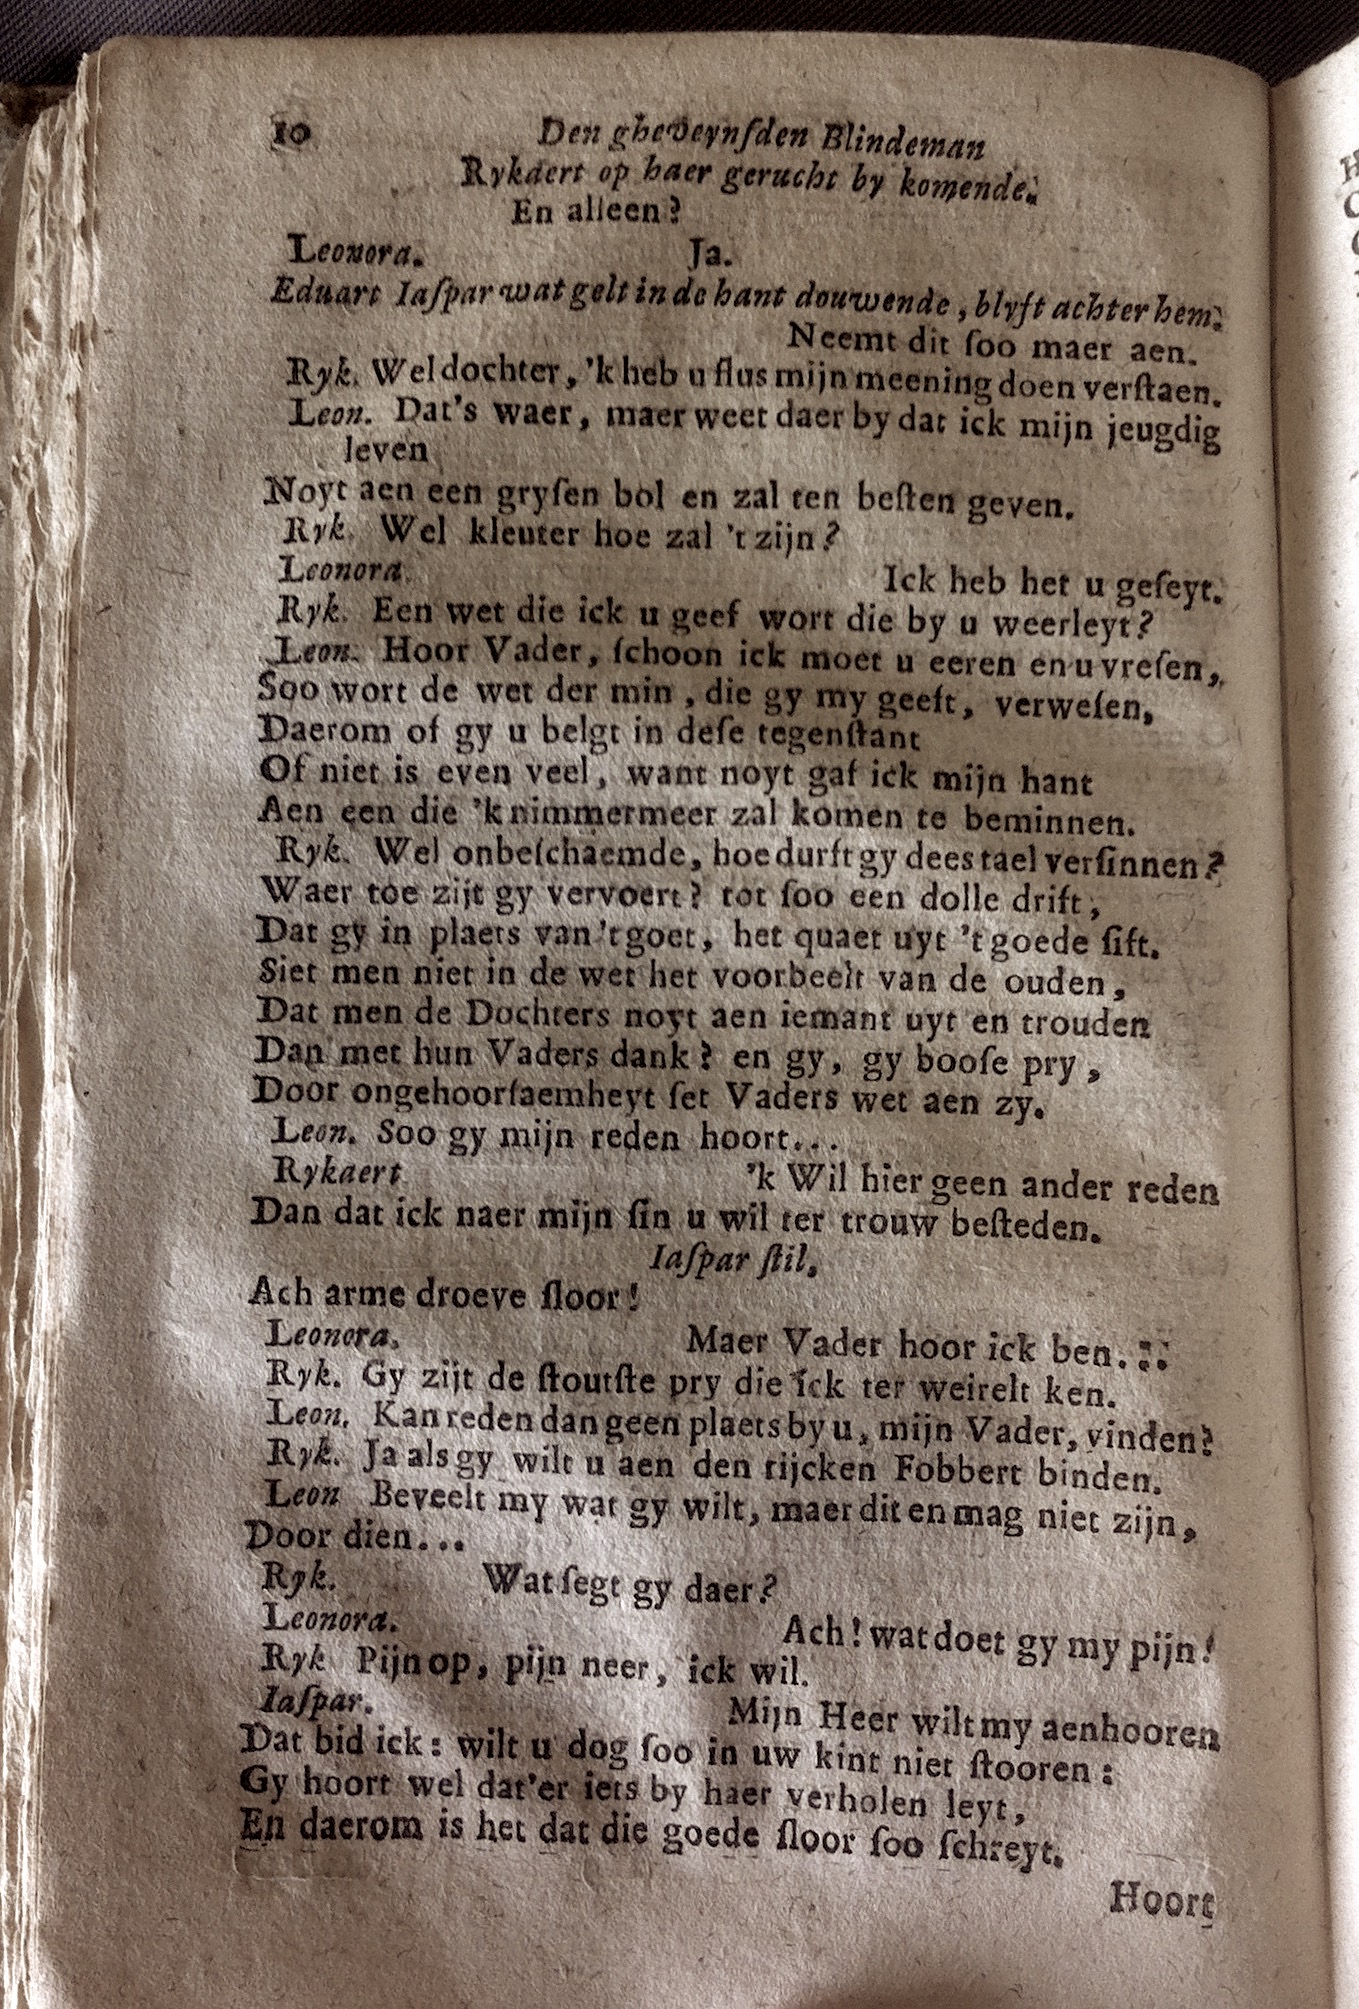 10 Den gheveynſden Blindeman
Rykaert op haer gerucht by komende.
En alleen?
Leonora. Ja.
Eduart Iaſpar wat gelt in de hant douwende, blyft achter hem.
Neemt dit ſoo maer aen.
Ryk. Wel dochter, 'k heb u flus mijn meening doen verſtaen.
Leon. Dat's waer, maer weet daer by dat ick mijn jeugdig
leven
Noyt aen een gryſen bol en zal ten beſten geven.
Ryk. Wel kleuter hoe zal 't zijn?
Leonora. Ick heb het u geſeyt.
Ryk. Een wet die ick u geef wort die by u weerleyt?
Leon. Hoor Vader, ſchoon ick moet u eeren en u vreſen,
Soo wort de wet der min, die gy my geeft, verweſen,
Daerom of gy u belgt in deſe tegenſtant
Of niet is even veel, want noyt gaf ick mijn hant
Aen een die 'k nimmermeer zal komen te beminnen.
Ryk. Wel onbeſchaemde, hoe durft gy dees tael verſinnen?
Waer toe zijt gy vervoert? tot ſoo een dolle drift,
Dat gy in plaets van 't goet, het quaet uyt 't goede ſift.
Siet men niet in de wet het voorbeelt van de ouden,
Dat men de Dochters noyt aen iemant uyt en trouden
Dan met hun Vaders dank? en gy, gy booſe pry,
Door ongehoorſaemheyt ſet Vaders wet aen zy.
Leon. Soo gy mijn reden hoort...
Rykaert 'k Wil hier geen ander reden
Dan dat ick naer mijn ſin u wil ter trouw beſteden.
Iaſpar ſtil.
Ach arme droeve ſloor!
Leonora. Maer Vader hoor ick ben...
Ryk. Gy zijt de ſtoutſte pry die ick ter weirelt ken.
Leon. Kan reden dan geen plaets by u, mijn Vader, vinden?
Ryk. Ja als gy wilt u aen den rijcken Fobbert binden.
Leon Beveelt my wat gy wilt, maer dit en mag niet zijn,
Door dien...
Ryk. Wat ſegt gy daer?
Leonora. Ach! wat doet gy my pijn!
Ryk Pijn op, pijn neer, ick wil.
Iaſpar. Mijn Heer wilt my aenhooren
Dat bid ick: wilt u dog ſoo in uw kint niet ſtooren:
Gy hoort wel dat'er iets by haer verholen leyt,
En daerom is het dat die goede ſloor ſoo ſchreyt.
Hoort